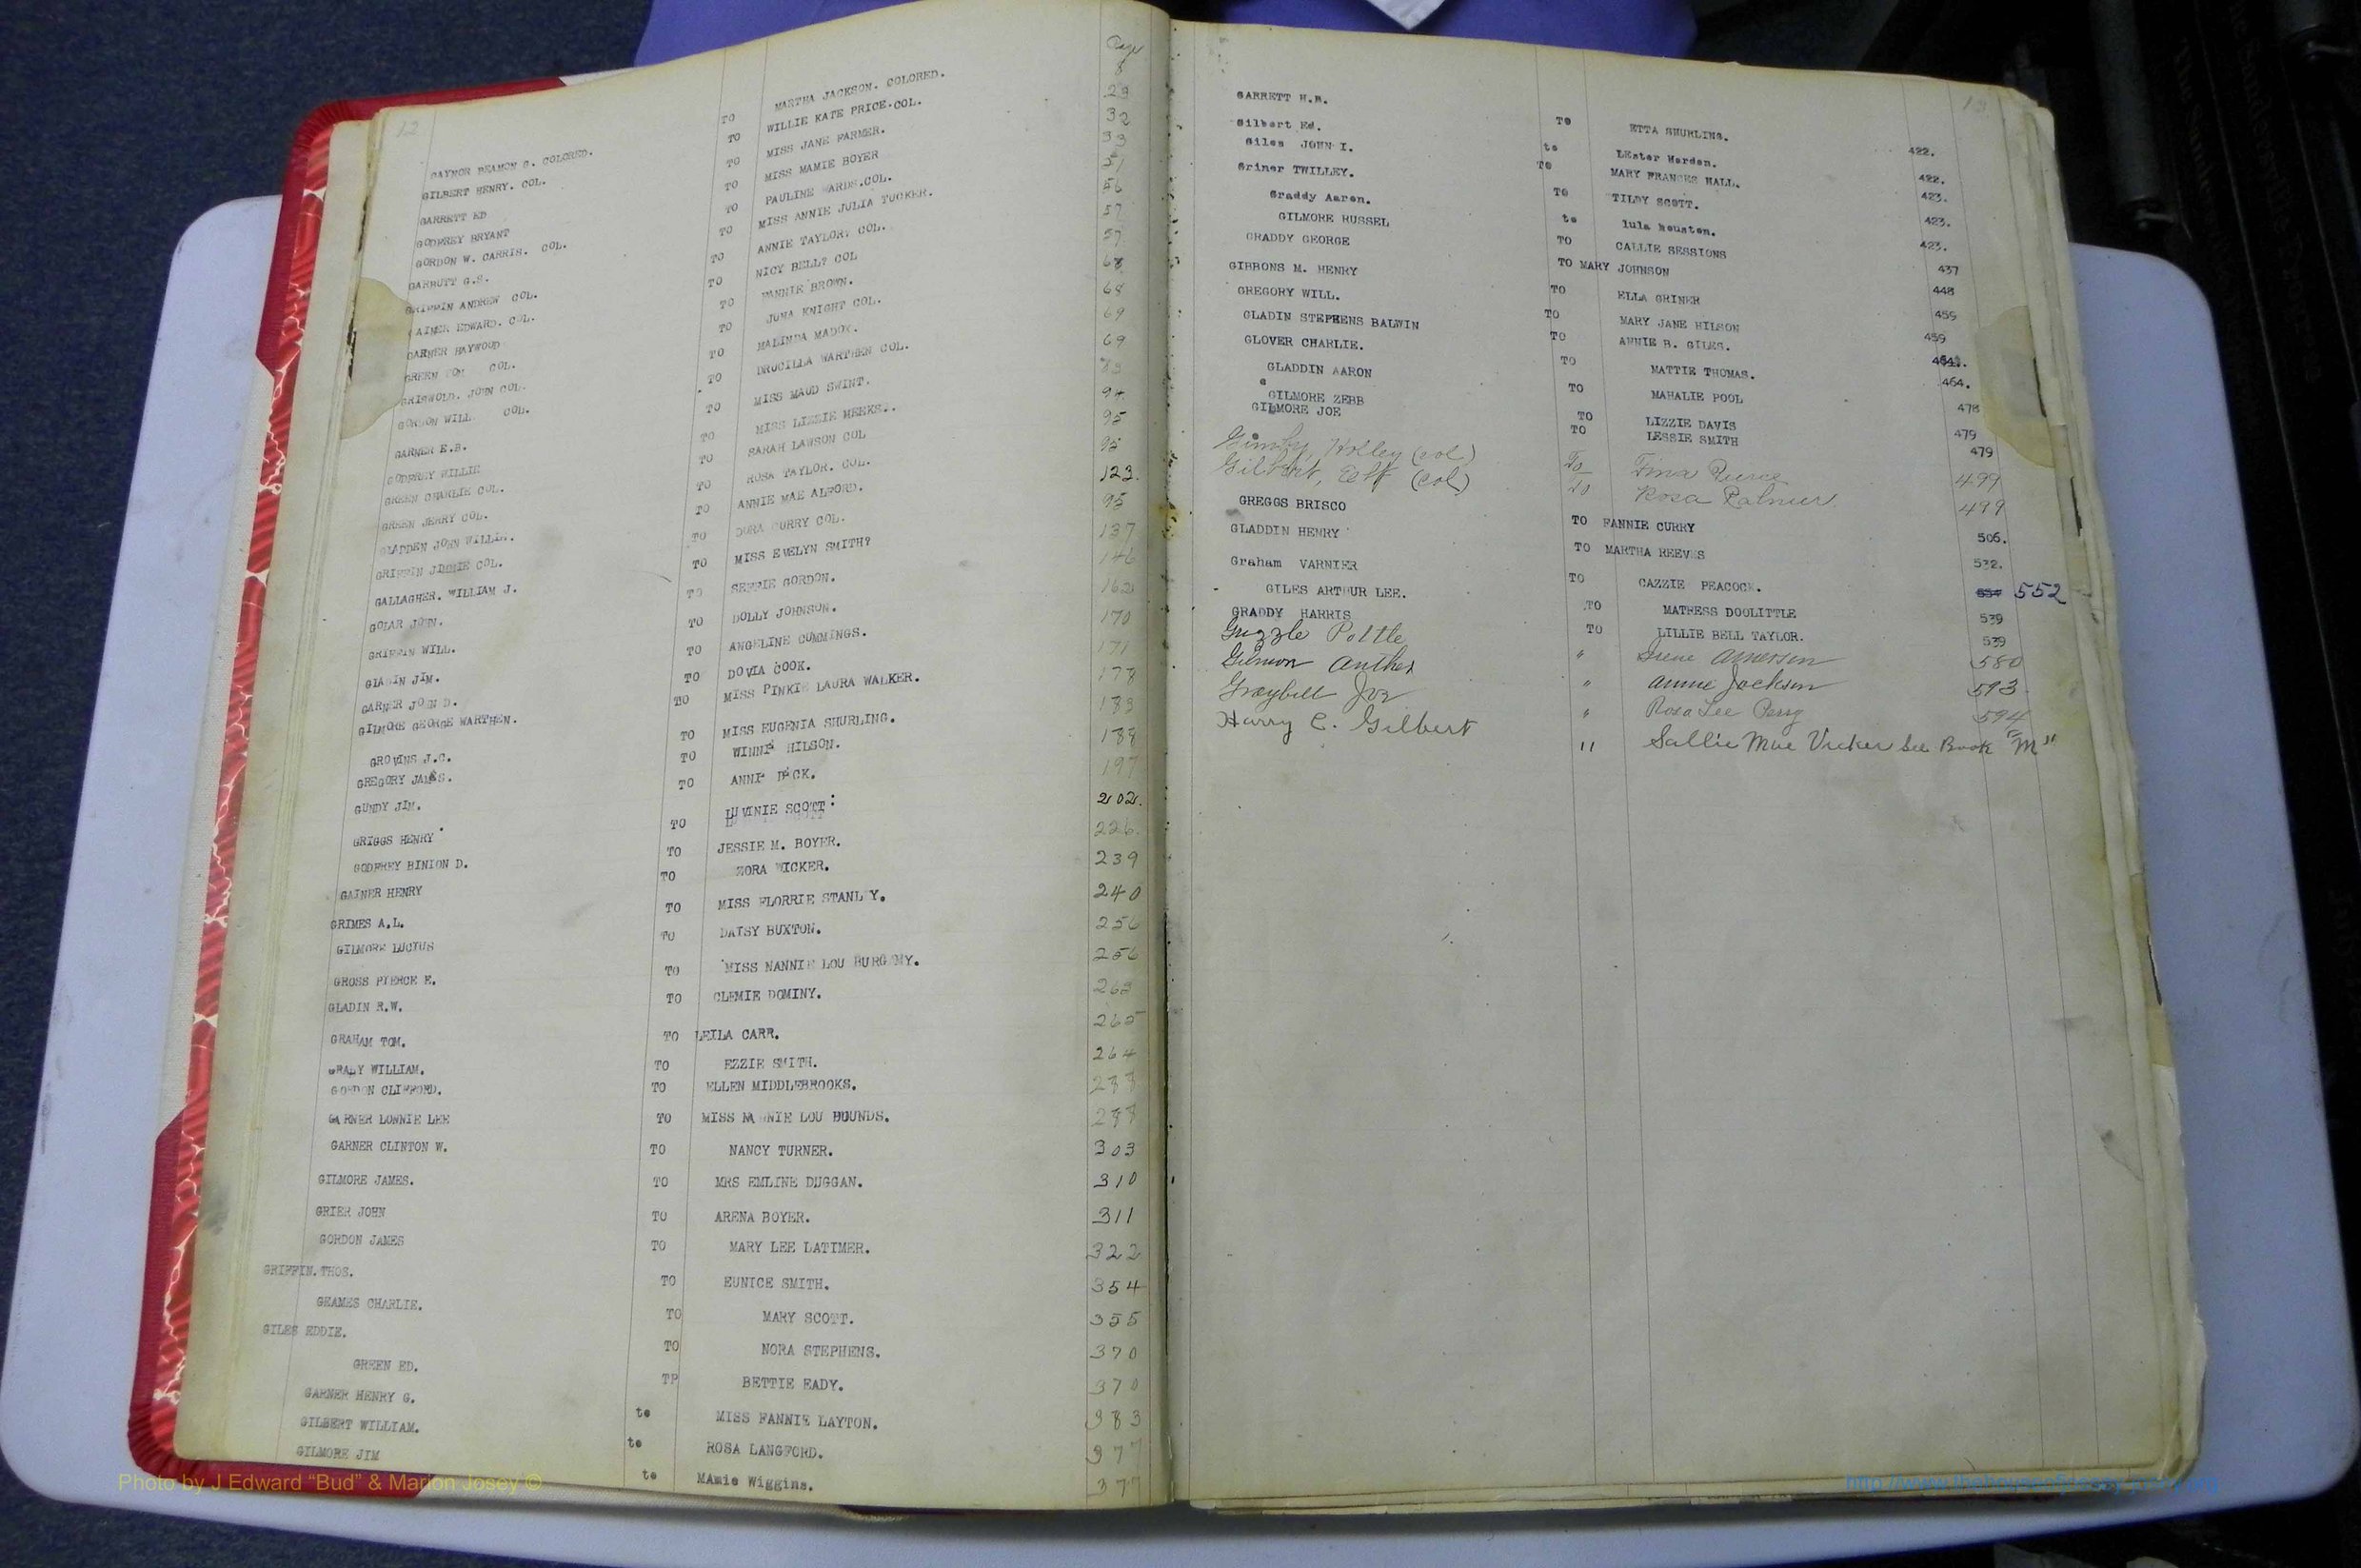 12
Page
GAYNOR BEAMON G. COLORED. TO MARTHA JACKSON. COLORED. 8
GILBERT HENRY. COL. TO WILLIE KATE PRICE.COL. 29
GARRETT ED TO MISS JANE FARMER. 32
GODFREY BRYANT TO MISS MAMIE BOYER 33
GORDON W. CARRIS. COL. TO PAULINE WARDS.COL. 51
GARRUTT G.S. TO MISS ANNIE JULIA TUCKER. 56
GRIFFIN ANDREW COL. TO ANNIE TAYLOR? COL. 57
GAINER EDWARD. COL. TO NICY BELL? COL 57
GARNER HAYWOOD TO FANNIE BROWN. 68
GREEN TOM COL. TO JUNA KNIGHT COL. 68
GRISWOLD. JOHN COL. TO MALINDA MADOX. 69
GORDON WILL COL. TO DRUCILLA WARTHEN COL. 69
GARNER E.B. TO MISS MAUD SWINT. 83
GODFREY WILLIE TO MISS LIZZIE MEEKS. 94
GREEN CHARLIE COL. TO SARAH LAWSON COL 95
GREEN JERRY COL. TO ROSA TAYLOR. COL. 95
GLADDEN JOHN WILLIE. TO ANNIE MAE ALFORD. 123.
GRIFFIN JIMMIE COL. TO DORA CURRY COL. 95
GALLAGHER. WILLIAM J. TO MISS EVELYN SMITH? 137
GOLAR JOHN. TO SEFFIE GORDON. 146
GRIFFIN WILL. TO DOLLY JOHNSON. 162
GLADIN JIM. TO ANGELINE CUMMINGS. 170
GARNER JOHN D. TO DOVIA COOK. 171
GILMORE GEORGE WARTHEN. TO MISS PINKIE LAURA WALKER. 178
GROVINS J.C. TO MISS EUGENIA SHURLING. 183
GREGORY JAMES. TO HILSON. 188
GUNDY JIM. TO 197
GRIGGS HENRY TO LUVINIE SCOTT: 202.
GODFREY BINION D. TO JESSIE M. BOYER. 226.
GAINER HENRY TO ZORA WICKER. 239
GRIMES A.L. TO MISS FLORRIE STANLEY. 240
GILMORE LUCIUS TO DAISY BUXTON. 256
GROSS PIERCE E. TO MISS NANNIE LOU BURGAMY. 256
GLADIN R.W. TO CLEMIE DOMINY. 263
GRAHAM TOM. TO LEILA CARR. 265
GRADY WILLIAM. TO EZZIE SMITH. 264
GORDON CLIFFORD. TO ELLEN MIDDLEBROOKS. 288
GARNER LONNIE LEE TO MISS NANNIE LOU BOUNDS. 288
GARNER CLINTON W. TO NANCY TURNER. 303
GILMORE JAMES. TO MRS EMLINE DUGGAN. 310
GRIER JOHN TO ARENA BOYER. 311
GORDON JAMES TO MARY LEE LATIMER. 322
GRIFFIN.THOS. TO EUNICE SMITH. 354
GEAMES CHARLIE. TO MARY SCOTT. 355
GILES EDDIE. TO NORA STEPHENS. 370
GREEN ED. TP BETTIE EADY. 370
GARNER HENRY G. to MISS FANNIE LAYTON. 383
GILBERT WILLIAM. to ROSA LANGFORD. 377
GILMORE JIM to MAmie Wiggins. 377
13
GARRETT H.B. To ETTA SHURLING. 422.
Gilbert Ed. to LEster Horden. 422.
Giles JOHN I. To MARY FRANCES HALL. 423.
Griner TWILLEY. TO TILDY SCOTT. 423.
Graddy Aaron. to lula Houston. 423.
GILMORE RUSSEL TO CALLIE SESSIONS 437
GRADDY GEORGE TO MARY JOHNSON 448
GIBBONS M. HENRY TO ELLA GRINER 459
GREGORY WILL. TO MARY JANE HILSON 459
GLADIN STEPHENS BALWIN TO ANNIE B. GILES. 464.
GLOVER CHARLIE. TO MATTIE THOMAS. 464.
GLADDIN AARON TO MAHALIE POOL 478
GILMORE ZEBB TO LIZZIE DAVIS 479
GILMORE JOE TO LESSIE SMITH 479
Holley (col) To Tina Pierce 499
Gilbert, (col) To Rosa Palmer. 499
GREGGS BRISCO TO FANNIE CURRY 506.
GLADDIN HENRY TO MARTHA REEVES 532.
Graham VARNIER TO CAZZIE PEACOCK. 552
GILES ARTHUR LEE. TO MATRESS DOOLITTLE 539
GRADDY HARRIS TO LILLIE BELL TAYLOR. 539
Guzzle Pottle " Irene Amerson 580
Gilmon Anther " Annie Jackson 593
Graybill Joe " Rosa Lee Perry 594
Harry C. Gilbert " Sallie Mae Vicker See Book "M"
Photo by J Edward "Bud" & Marion Josey ©